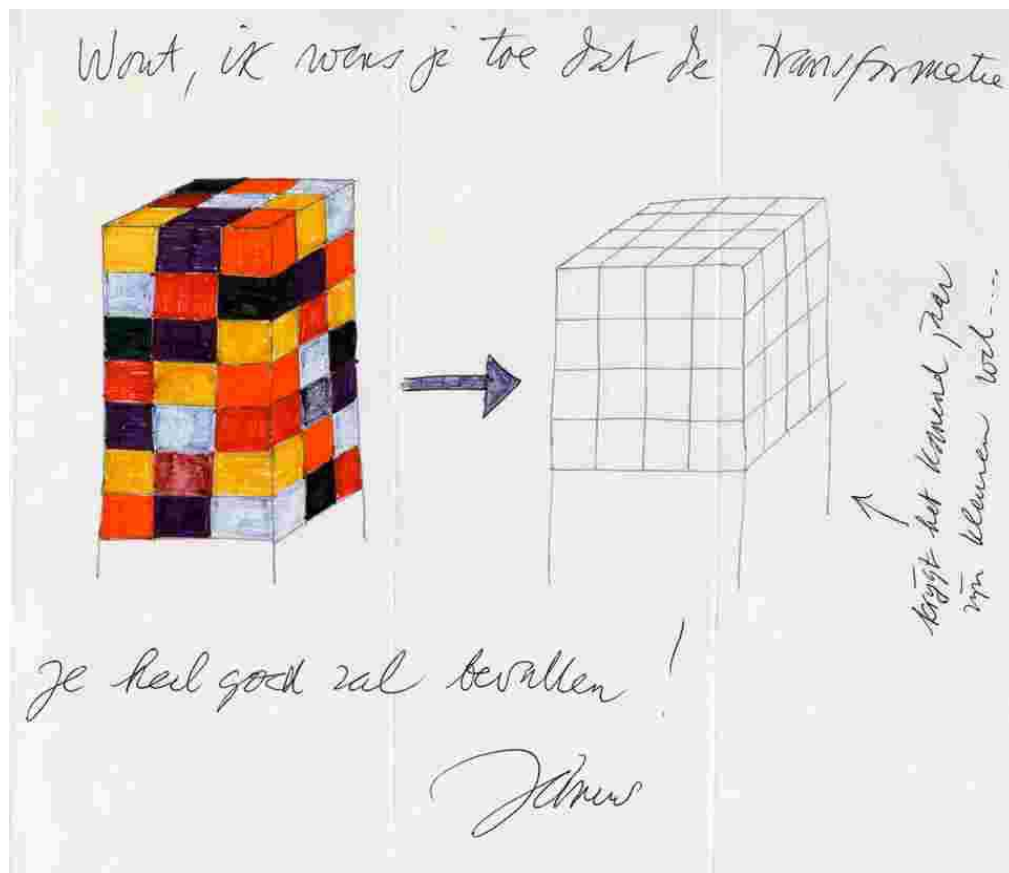 Wout, ik wens je toe dat de transformatie
krijgt het komend jaar
zijn kleuren wel....
je heel goed zal bevallen!